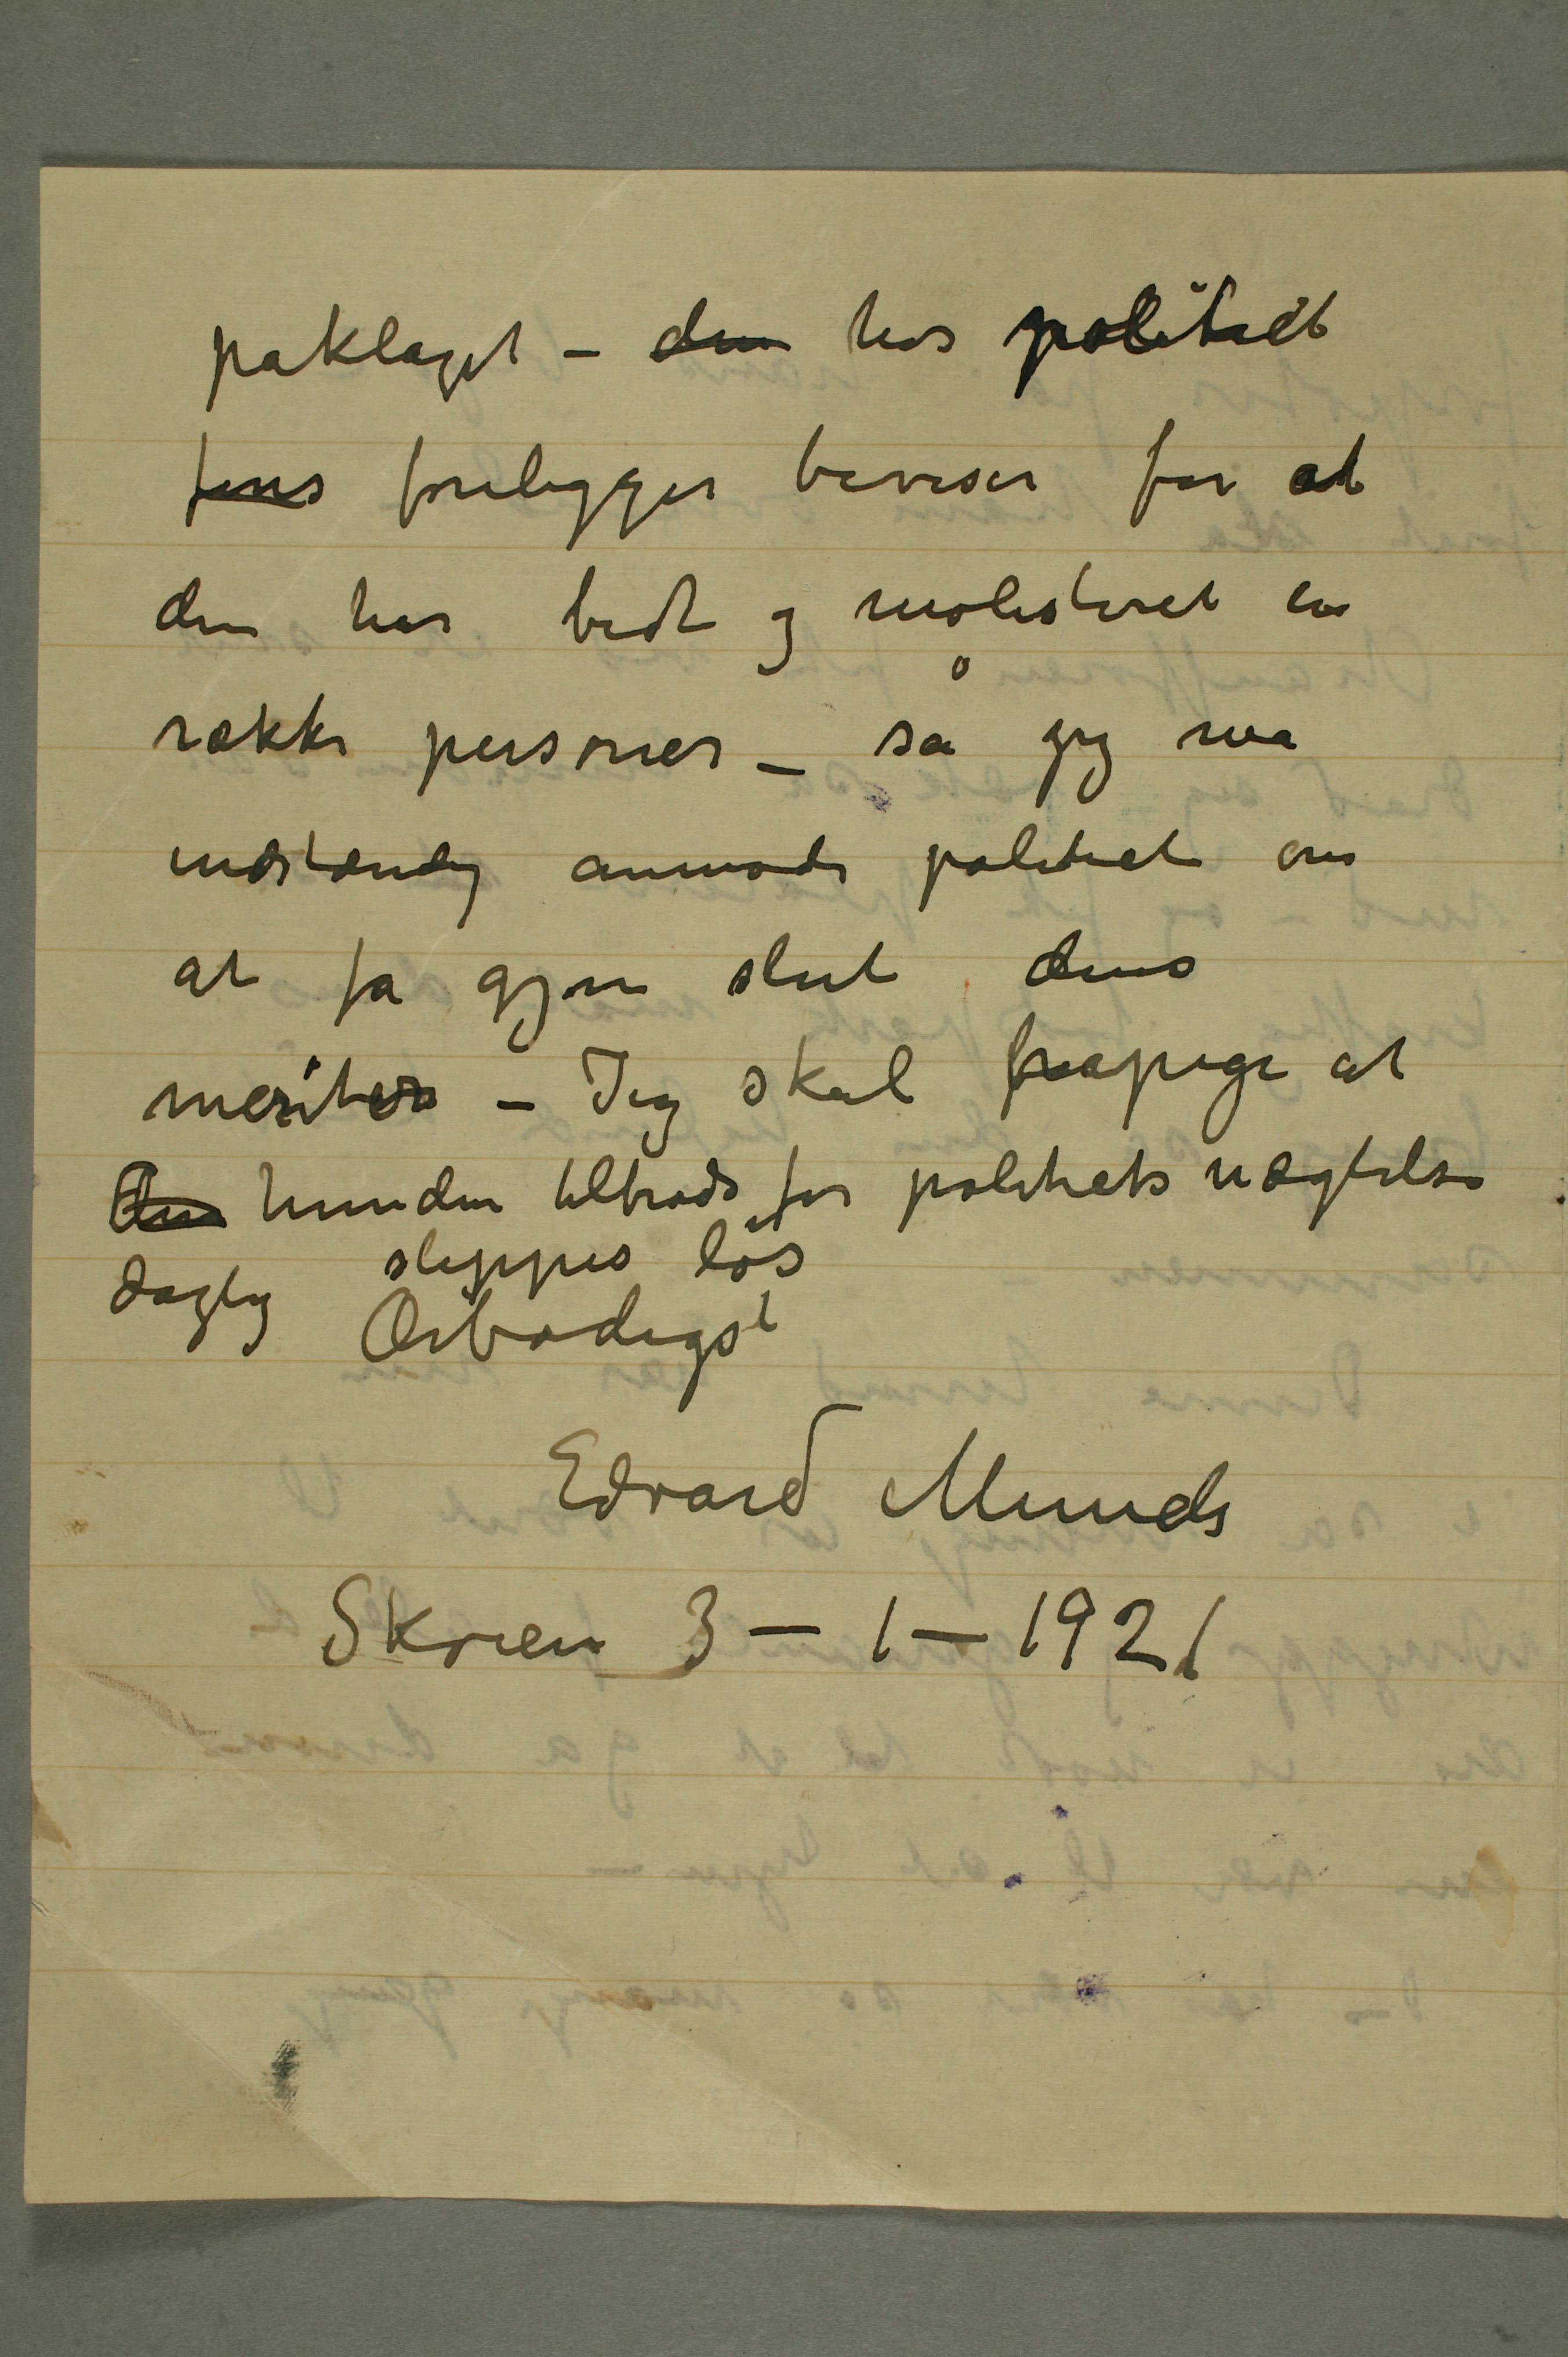 paklaget – den hos politiet
fins foreligger beviser for at
den har bidt og molisteret en
række personer – så jeg ma
indstændig anmode politiet om
at fa gjøre slut dens
meriter – Jeg skal paapege at
Den hunden tiltrods for politiets nægtelse
daglig slippes lös
Ærbødigst
Edvard Munch
Skøien 3 – 1 – 1921